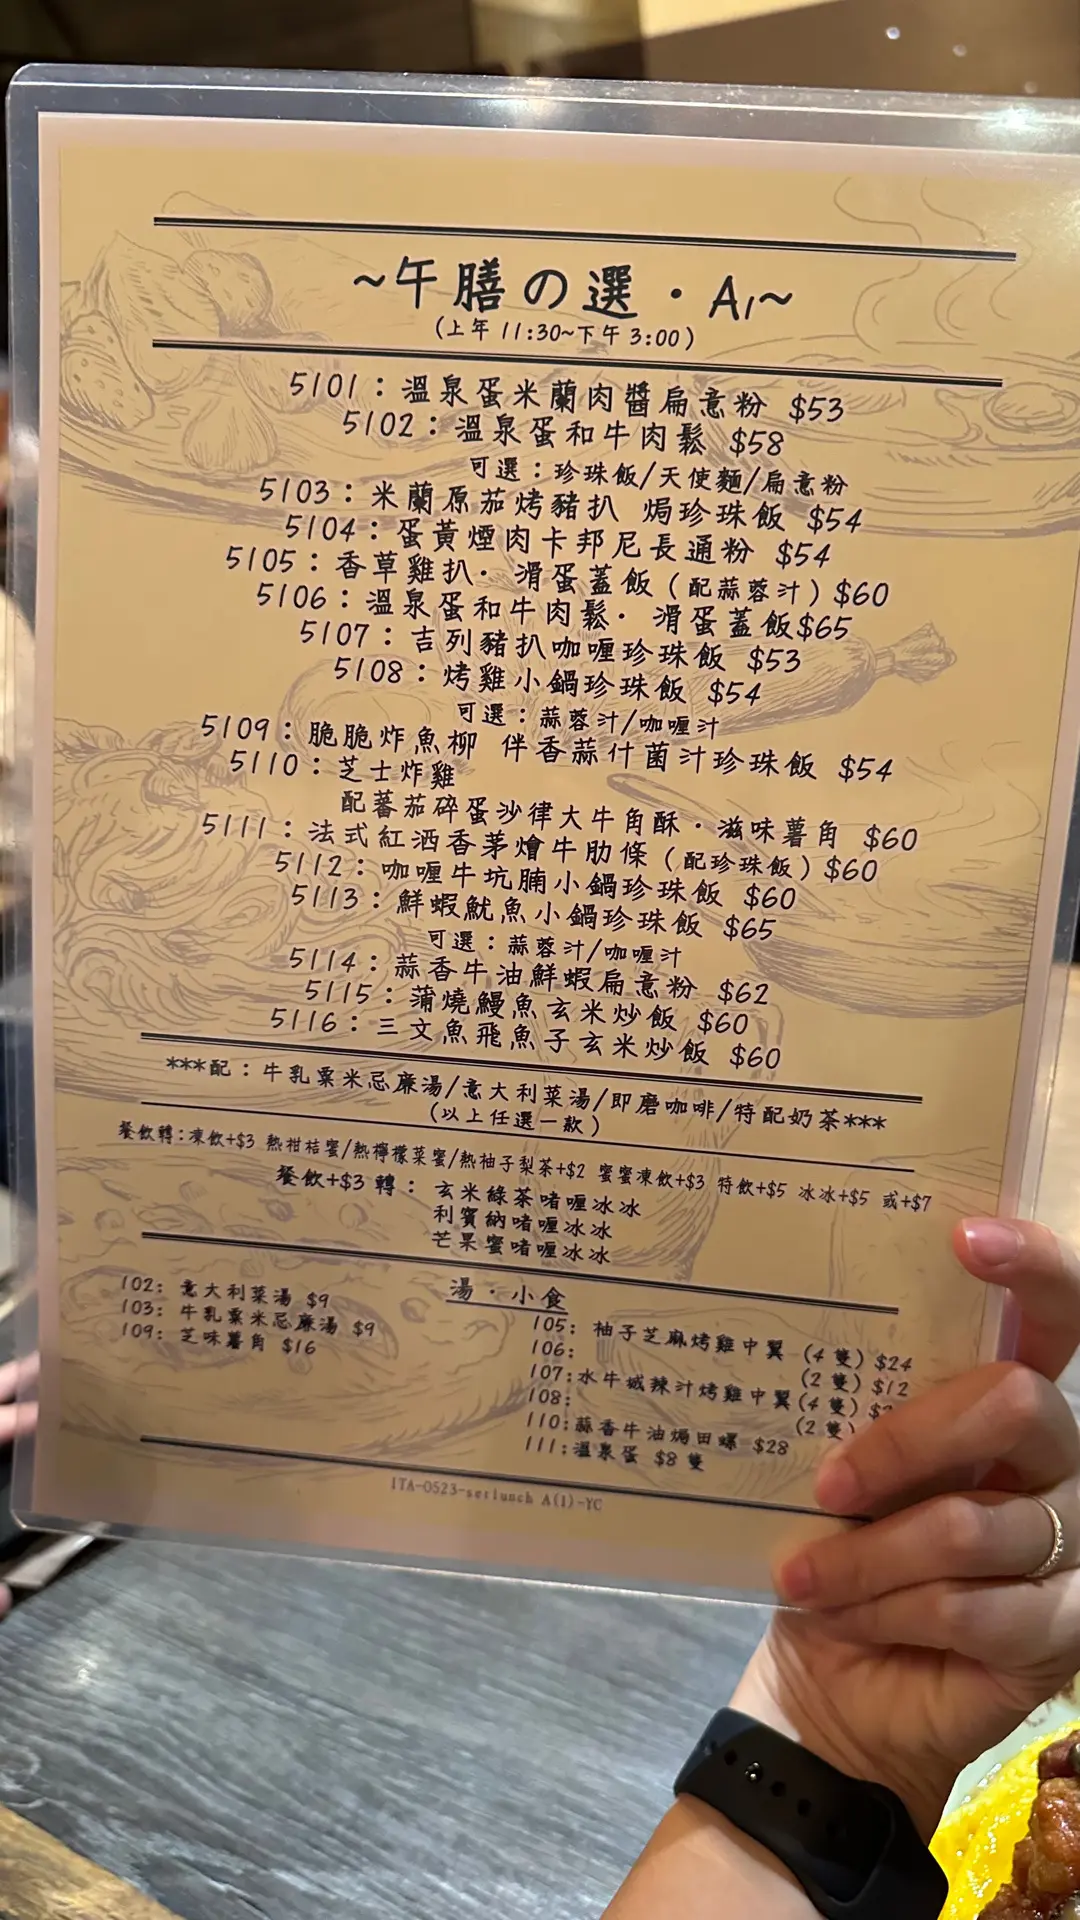 ~午膳の選·A1~
(上年 11:30~下午 3:00)
5101：溫泉蛋米蘭肉醬扁意粉 $53
5102：溫泉蛋和牛肉鬆 $58
可選：珍珠飯/天使麵/扁意粉
5103：米蘭原茄烤豬扒 焗珍珠飯 $54
5104：蛋黃煙肉卡邦尼長通粉 $54
5105：香草雞扒· 滑蛋蓋飯(配蒜蓉汁)$60
5106：溫泉蛋和牛肉鬆· 滑蛋蓋飯$65
5107：吉列豬扒咖喱珍珠飯 $53
5108：烤雞小鍋珍珠飯 $54
可選：蒜蓉汁/咖喱汁
5109：脆脆炸魚柳 伴香蒜什菌汁珍珠飯 $54
5110：芝士炸雞
配蕃茄碎蛋沙律大牛角酥·滋味薯角 $60
5111：法式紅酒香茅燴牛肋條(配珍珠飯)$60
5112：咖喱牛坑腩小鍋珍珠飯 $60
5113：鮮蝦魷魚小鍋珍珠飯 $65
可選：蒜蓉汁/咖喱汁
5114：蒜香牛油鮮蝦扁意粉 $62
5115：蒲燒鰻魚玄米炒飯 $60
5116：三文魚飛魚子玄米炒飯 $60
***配：牛乳粟米忌廉湯/意大利菜湯/即磨咖啡/特配奶茶***
(以上任選一款)
餐飲轉:凍飲+$3 熱柑桔蜜/熱檸檬菜蜜/熱柚子梨茶+$2 蜜蜜凍飲+$3 特飲+$5 冰冰+$5 或+$7
餐飲+$3 轉：玄米綠茶啫喱冰冰
利賓納啫喱冰冰
芒果蜜啫喱冰冰
湯·小食
102: 意大利菜湯 $9
103: 牛乳粟米忌廉湯 $9
109: 芝味薯角 $16
105: 柚子芝麻烤雞中翼 (4 隻) $24
106: (2 隻) $12
107:水牛城辣汁烤雞中翼(4 隻)
108: (2 隻)
110:蒜香牛油焗田螺 $28
111:溫泉蛋 $8 隻
ITA-0523-setlunch A(1)-YC